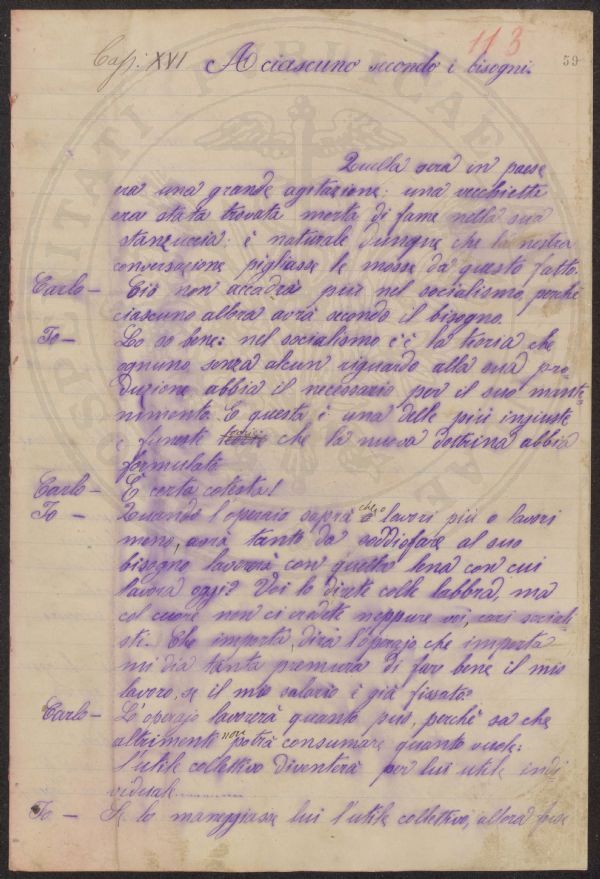 113
59
Cap: XVI A ciascuno secondo i bisogni.
Quella sera in paese
era una grande agitazione: una vecchietta
era stata trovata morta di fame nella sua
stanzuccia: è naturale dunque che la nostra
conversazione pigliasse le mosse da questo fatto.
Carlo – Ciò non accadrà più nel socialismo, perchè
ciascuno allora avrà secondo il bisogno.
Io – Lo so bene: nel socialismo c'è la teoria che
ognuno, senza alcun riguardo alla sua pro-
duzione abbia il necessario per il suo mante-
nimento. E questa è una delle più ingiuste
e funeste che la nuova dottrina abbia
formulato
Carlo – È certa cotesta!
Io – Quando l'operajo saprà che o lavori più o lavori
meno, avrà tanto da soddisfare al suo
bisogno lavorerà con quella lena con cui
lavora oggi? Voi lo dite colle labbra, ma
col cuore non ci credete neppure voi, cari sociali-
sti. Che importa, dirà l'operajo, che importa
mi dia tanta premura di fare bene il mio
lavoro, se il mio salario è già fissato?
Carlo – L'operajo lavorerà quanto può, perchè sa che
altrimenti non potrà consumare quanto vuole:
l'utile collettivo diventerà per lui utile indi-
viduale...........
Io – Se lo maneggiasse lui l'utile collettivo, allora forse